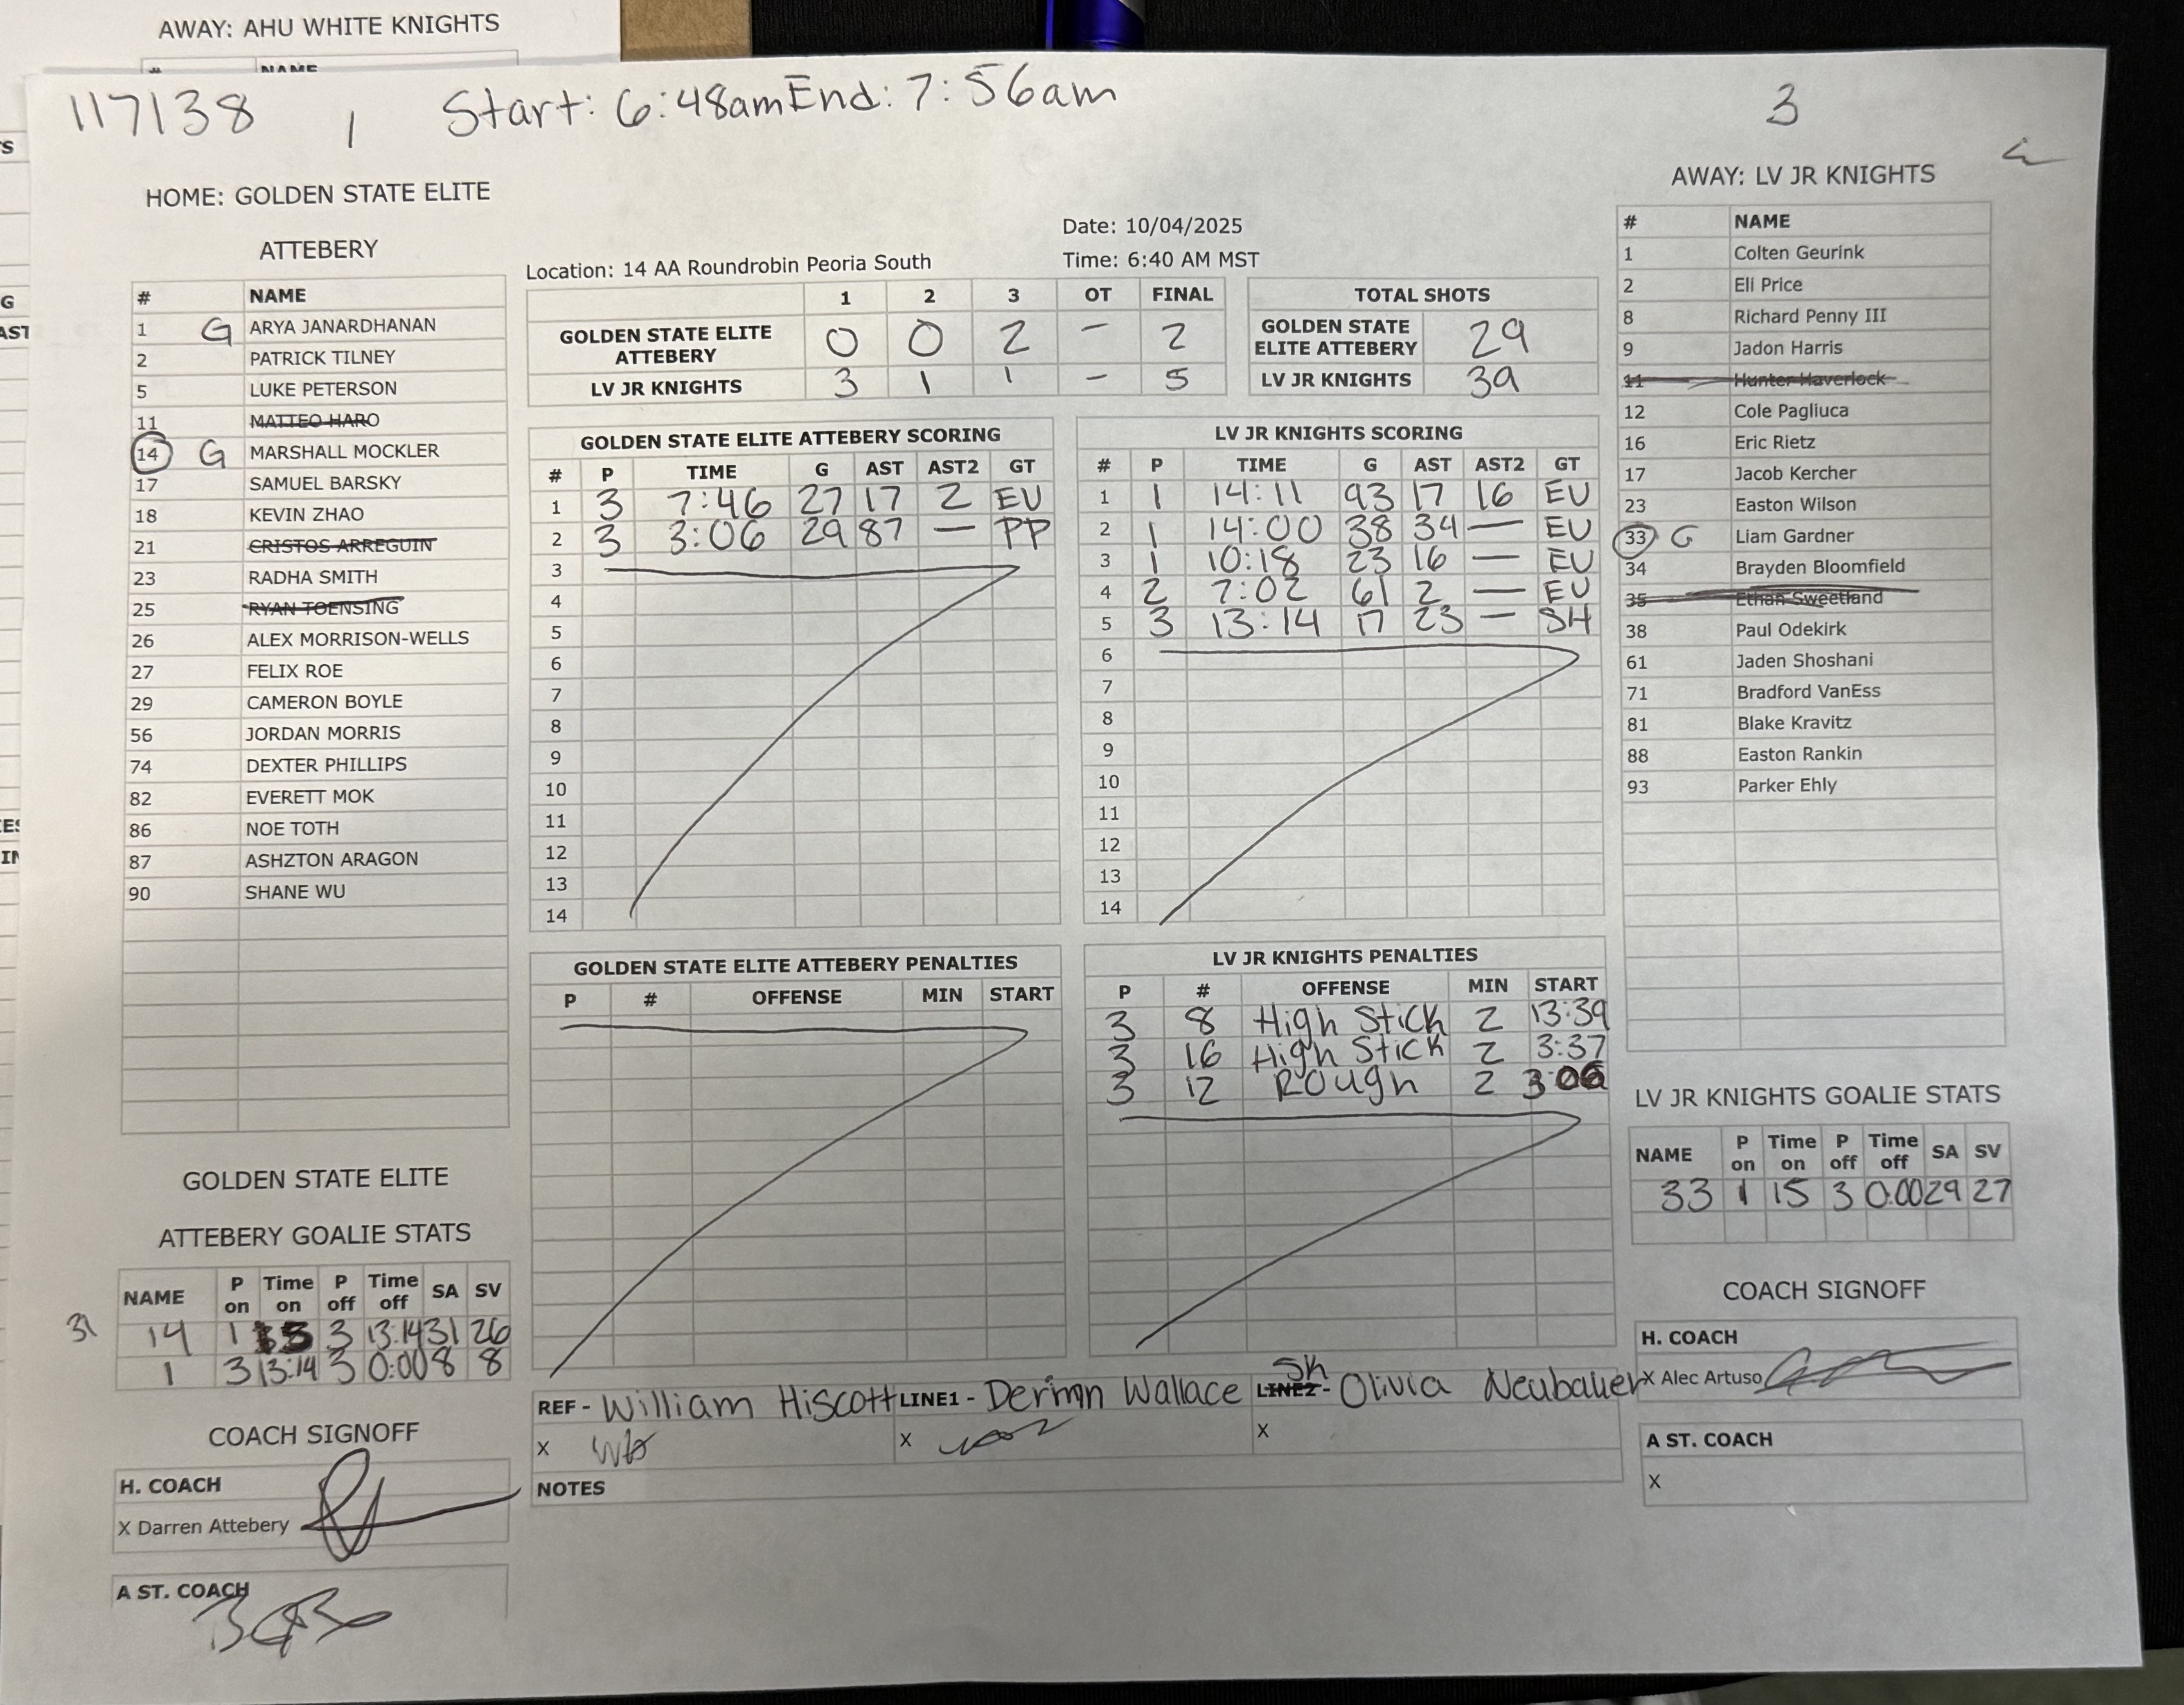 AWAY: AHU WHITE KNIGHTS
# NAME
117138 1 Start: 6:48am End: 7:56am 3
HOME: GOLDEN STATE ELITE
ATTEBERY
# NAME
1 G ARYA JANARDHANAN
2 PATRICK TILNEY
5 LUKE PETERSON
11 MATTEO HARO
14 G MARSHALL MOCKLER
17 SAMUEL BARSKY
18 KEVIN ZHAO
21 CRISTOS ARREGUIN
23 RADHA SMITH
25 RYAN TOENSING
26 ALEX MORRISON-WELLS
27 FELIX ROE
29 CAMERON BOYLE
56 JORDAN MORRIS
74 DEXTER PHILLIPS
82 EVERETT MOK
86 NOE TOTH
87 ASHZTON ARAGON
90 SHANE WU
GOLDEN STATE ELITE
ATTEBERY GOALIE STATS
NAME P on Time on P off Time off SA SV
31 14 1 15 3 13:14 31 26
1 3 13:14 3 0:00 8 8
COACH SIGNOFF
H. COACH
X Darren Attebery
A ST. COACH
Date: 10/04/2025
Location: 14 AA Roundrobin Peoria South
Time: 6:40 AM MST
1 2 3 OT FINAL
GOLDEN STATE ELITE ATTEBERY 0 0 2 — 2
LV JR KNIGHTS 3 1 1 — 5
TOTAL SHOTS
GOLDEN STATE ELITE ATTEBERY 29
LV JR KNIGHTS 39
GOLDEN STATE ELITE ATTEBERY SCORING
# P TIME G AST AST2 GT
1 3 7:46 27 17 2 EU
2 3 3:06 29 87 — PP
3
4
5
6
7
8
9
10
11
12
13
14
LV JR KNIGHTS SCORING
# P TIME G AST AST2 GT
1 1 14:11 93 17 16 EU
2 1 14:00 38 34 — EU
3 1 10:18 23 16 — EU
4 2 7:02 61 2 — EU
5 3 13:14 17 23 — SH
6
7
8
9
10
11
12
13
14
GOLDEN STATE ELITE ATTEBERY PENALTIES
P # OFFENSE MIN START
LV JR KNIGHTS PENALTIES
P # OFFENSE MIN START
3 8 High Stick 2 13:39
3 16 High Stick 2 3:37
3 12 Rough 2 3:06
REF - William Hiscott LINE1 - Dermn Wallace LINE2 - SK Olivia Neubauer
X X X
NOTES
AWAY: LV JR KNIGHTS
# NAME
1 Colten Geurink
2 Eli Price
8 Richard Penny III
9 Jadon Harris
11 Hunter Haverlock
12 Cole Pagliuca
16 Eric Rietz
17 Jacob Kercher
23 Easton Wilson
33 G Liam Gardner
34 Brayden Bloomfield
35 Ethan Sweetland
38 Paul Odekirk
61 Jaden Shoshani
71 Bradford VanEss
81 Blake Kravitz
88 Easton Rankin
93 Parker Ehly
LV JR KNIGHTS GOALIE STATS
NAME P on Time on P off Time off SA SV
33 1 15 3 0:00 29 27
COACH SIGNOFF
H. COACH
X Alec Artuso
A ST. COACH
X